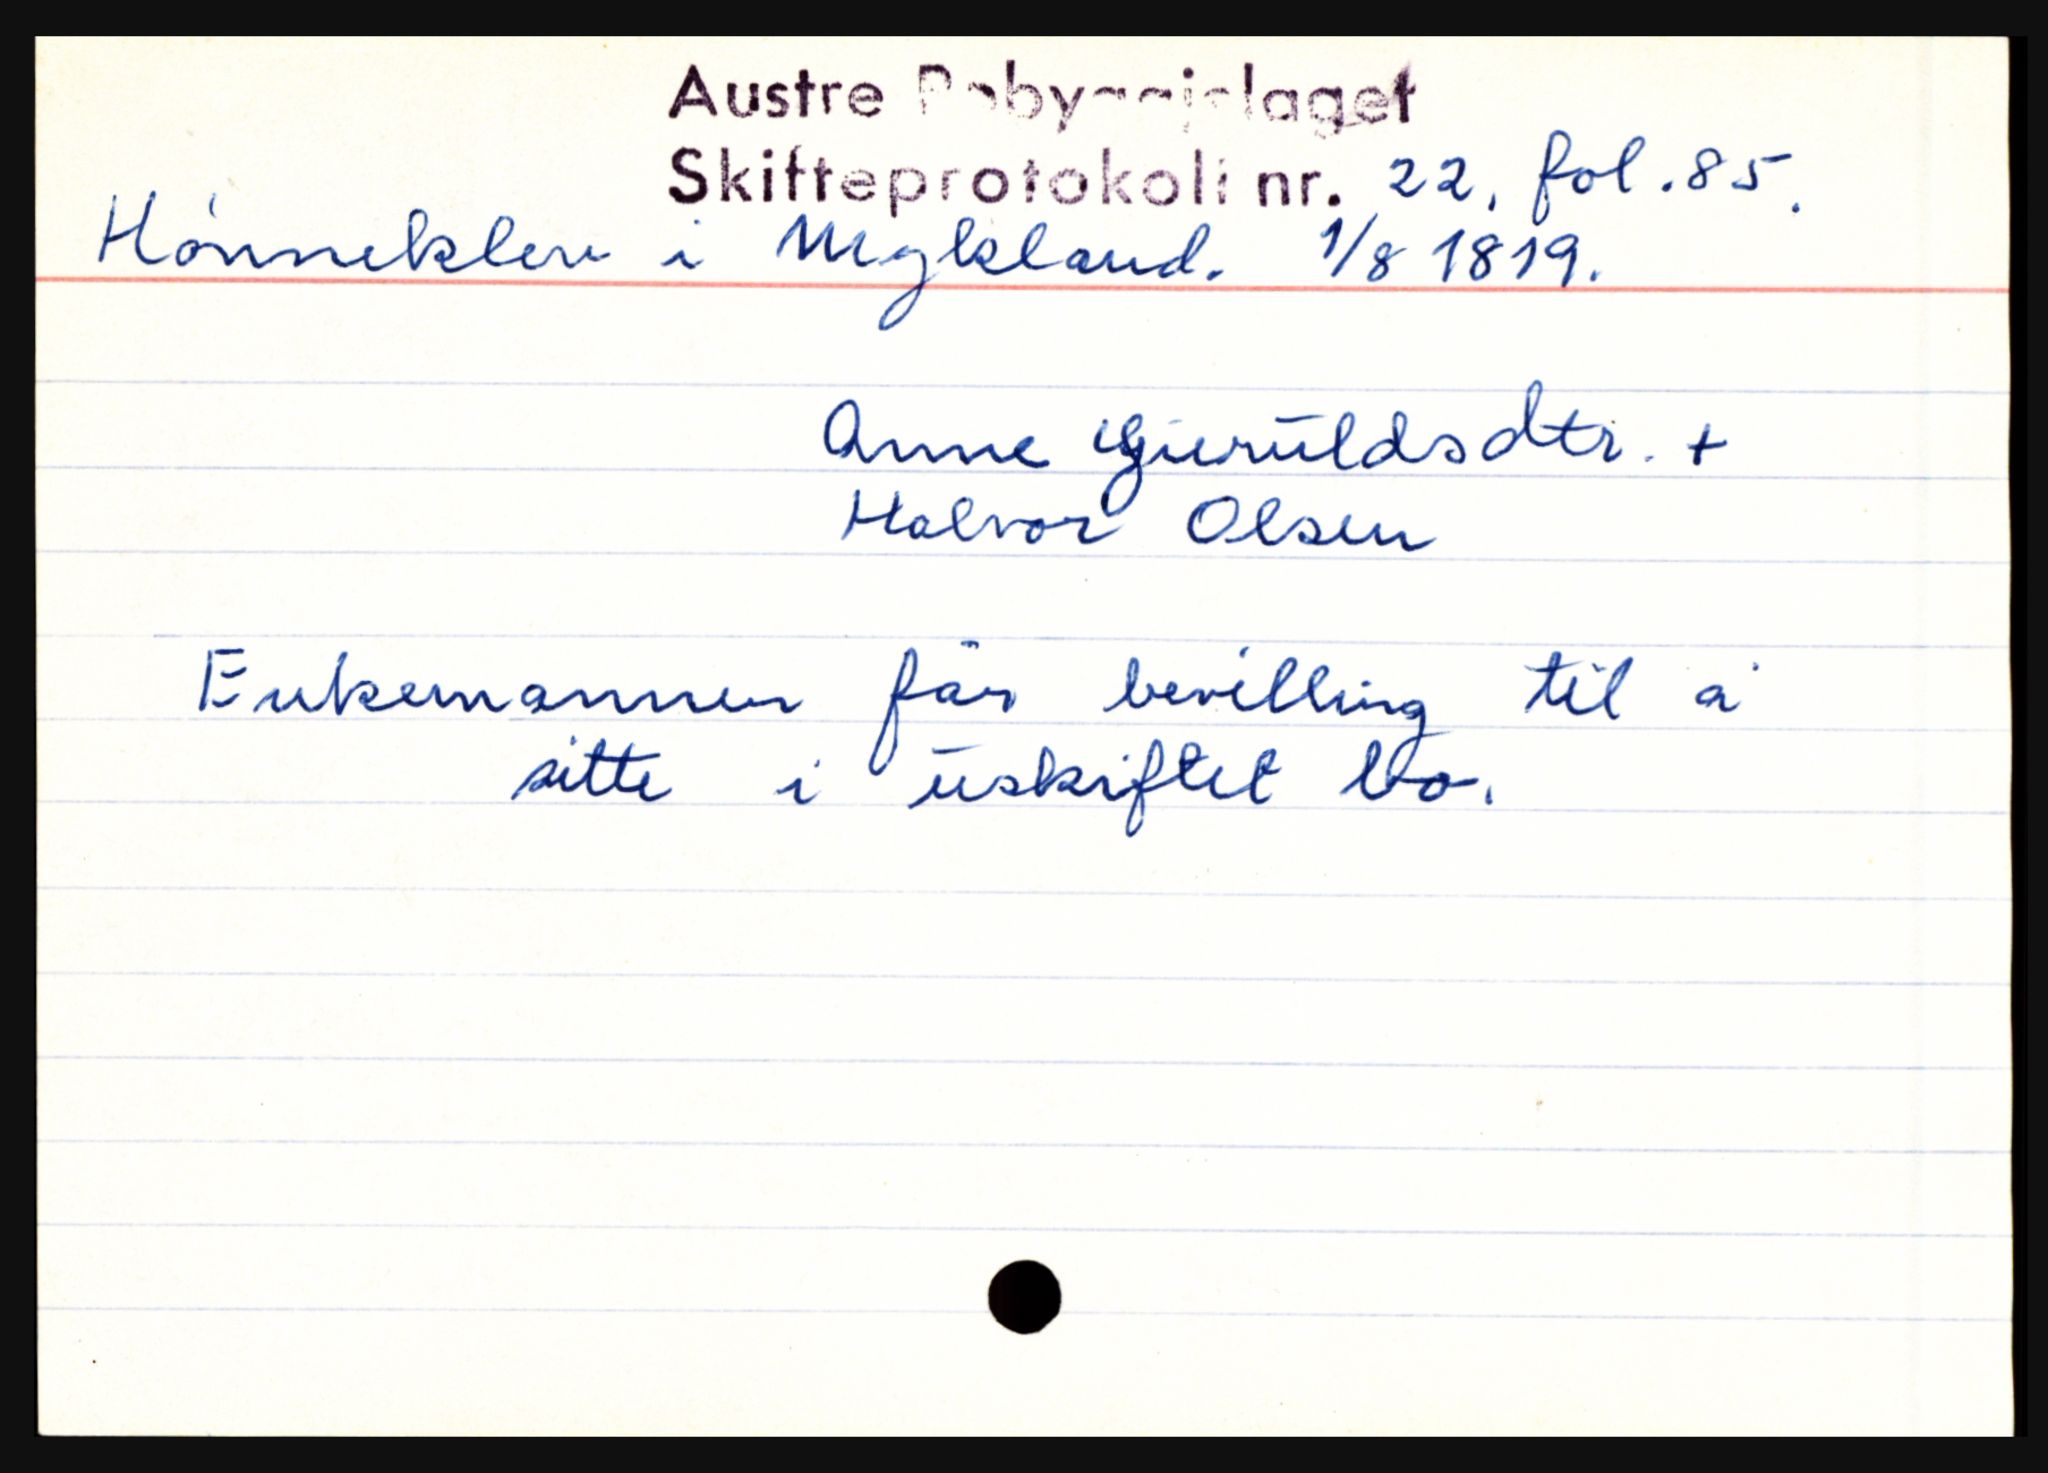 Austre Robyggjelaget
Skifteprotokoll nr. 22, fol. 85.
Hønneklev i Mykland. 1/8 1819.
Anne Gieruldsdtr. +
Halvor Olsen
Enkemannen får bevilling til å
sitte i uskiftet bo.